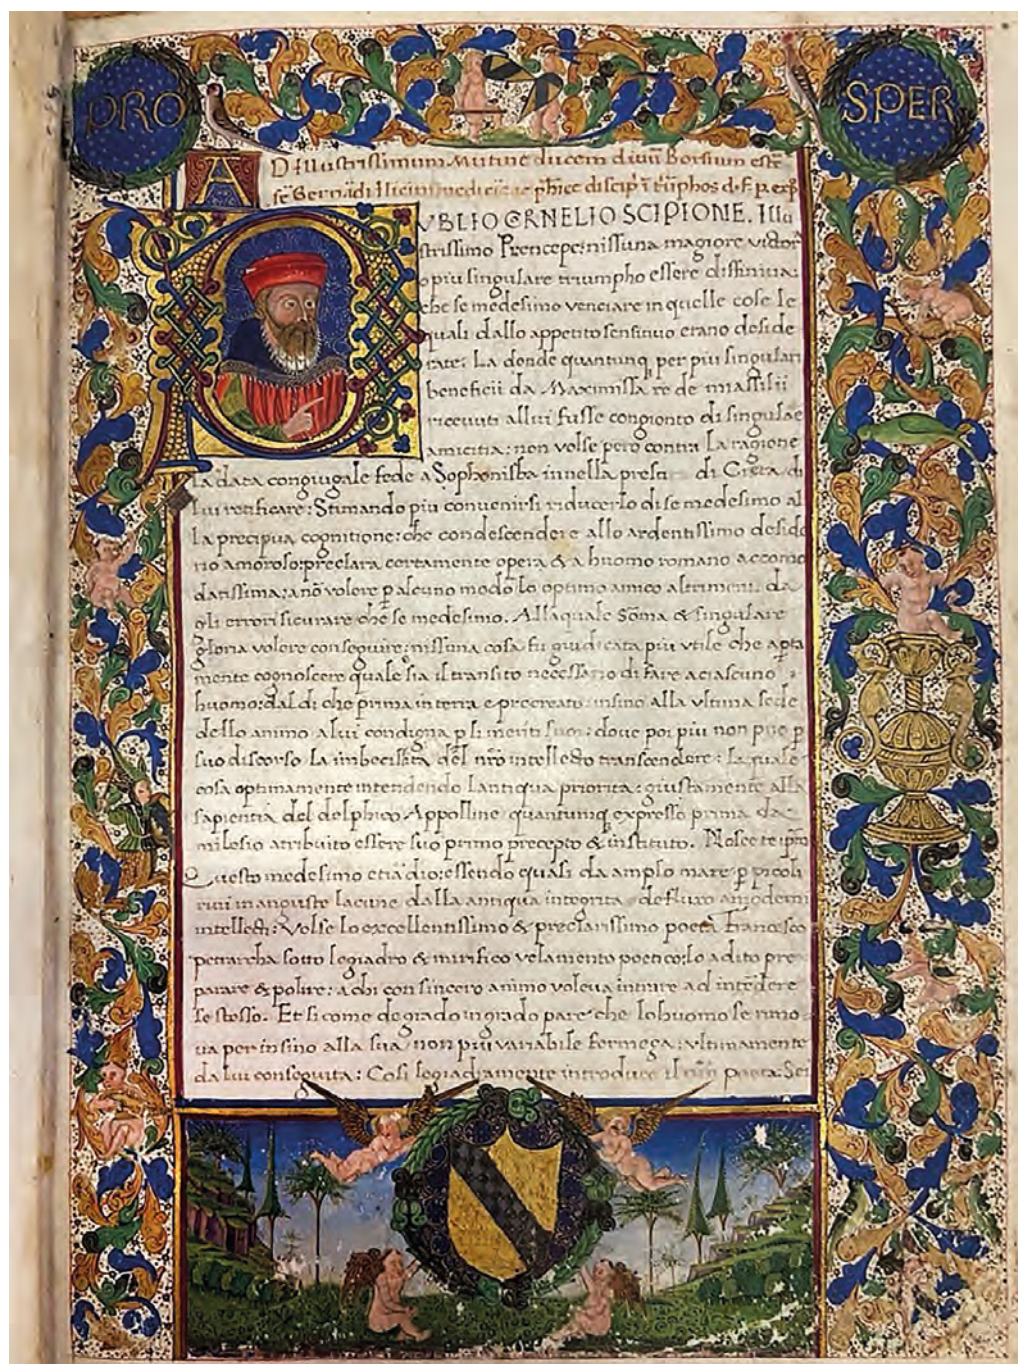 PRO
SPER
AD Illustrissimum Mutine ducem diuũ Borsium estẽ
VBLIO CORNELIO SCIPIONE. Illu
strissimo Prencepe: nissuna magiore victor
o piu singulare triumpho essere diffiniua:
che se medesimo venciare in quelle cose le
quali dallo appetito sensitiuo erano deside
rate: La donde quantunq per piu singulari
beneficii da Maximissa re de massilii
riceuuti allui fusse congionto di singulae
amicitia: non volse pero contra La ragione
La data congiugale fede a Sophonisba innella presa di Cirta di
Lui retificare: Stimando piu conuenirsi riducerlo di se medesimo al
La precipua cognitione: che condescendere allo ardentissimo deside
rio amoroso: preclara certamente opera & a huomo romano accomo
datissima: a nõ volere p alcuno modo lo optimo amico altrimenti da
gli errori sicurare che se medesimo. Allaquale sõma & singulare
gloria volere conseguire: nissuna cosa fu giudicata piu vtile che apta
mente cognoscere quale sia il transito necessario di fare a ciascuno
huomo: dal di che prima in terra e procreato: insino alla vltima sede
dello animo a lui condigna p li meriti suoi: doue poi piu non puo p
suo discorso La imbecillita del nrõ intellecto transcendere: La quale
cosa optimamente intendendo Lantiqua priorita: giustamente alla
sapientia del delphico Appolline quantunq expresso prima da
milesio atribuito essere suo primo precepto & instituto. Nosce te ipsũ
Questo medesimo etiãdio: essendo quali da amplo mare p picoli
riui in anguste lacune dalla antiqua integrita defluxo a moderni
intellecti: Volse lo excellentissimo & preclarissimo poeta Francesco
petrarcha sotto legiadro & mirifico velamento poetico: lo adito pre
parare & polire: a chi con sincero animo voleua intrare ad intẽdere
se stesso. Et si come de grado in grado pare che lo huomo se rimo
ua per insino alla sua non piu variabile fermeça: vltimamente
da lui conseguita: Cosi legiadramente introduce il poeta: Sei